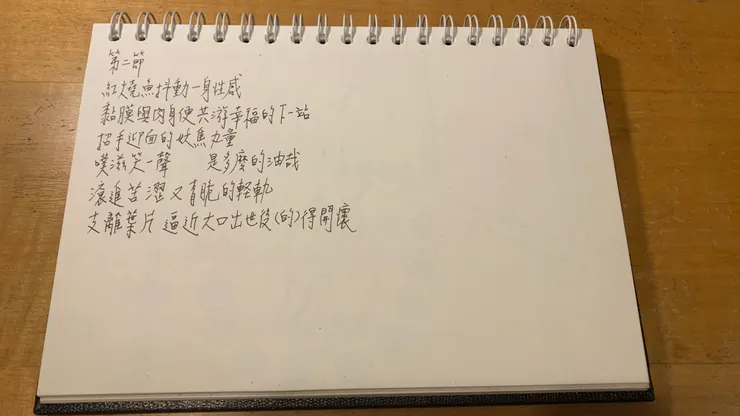 第二節
紅燒魚抖動一身性感
黏膜與肉身便共游幸福的下一站
招手迎面的妖焦丸童
噗滋笑一聲 是多麼的油哉
滾進苦澀又青脆的輕軌
支離葉片 逼近大口出世後(的)得開懷